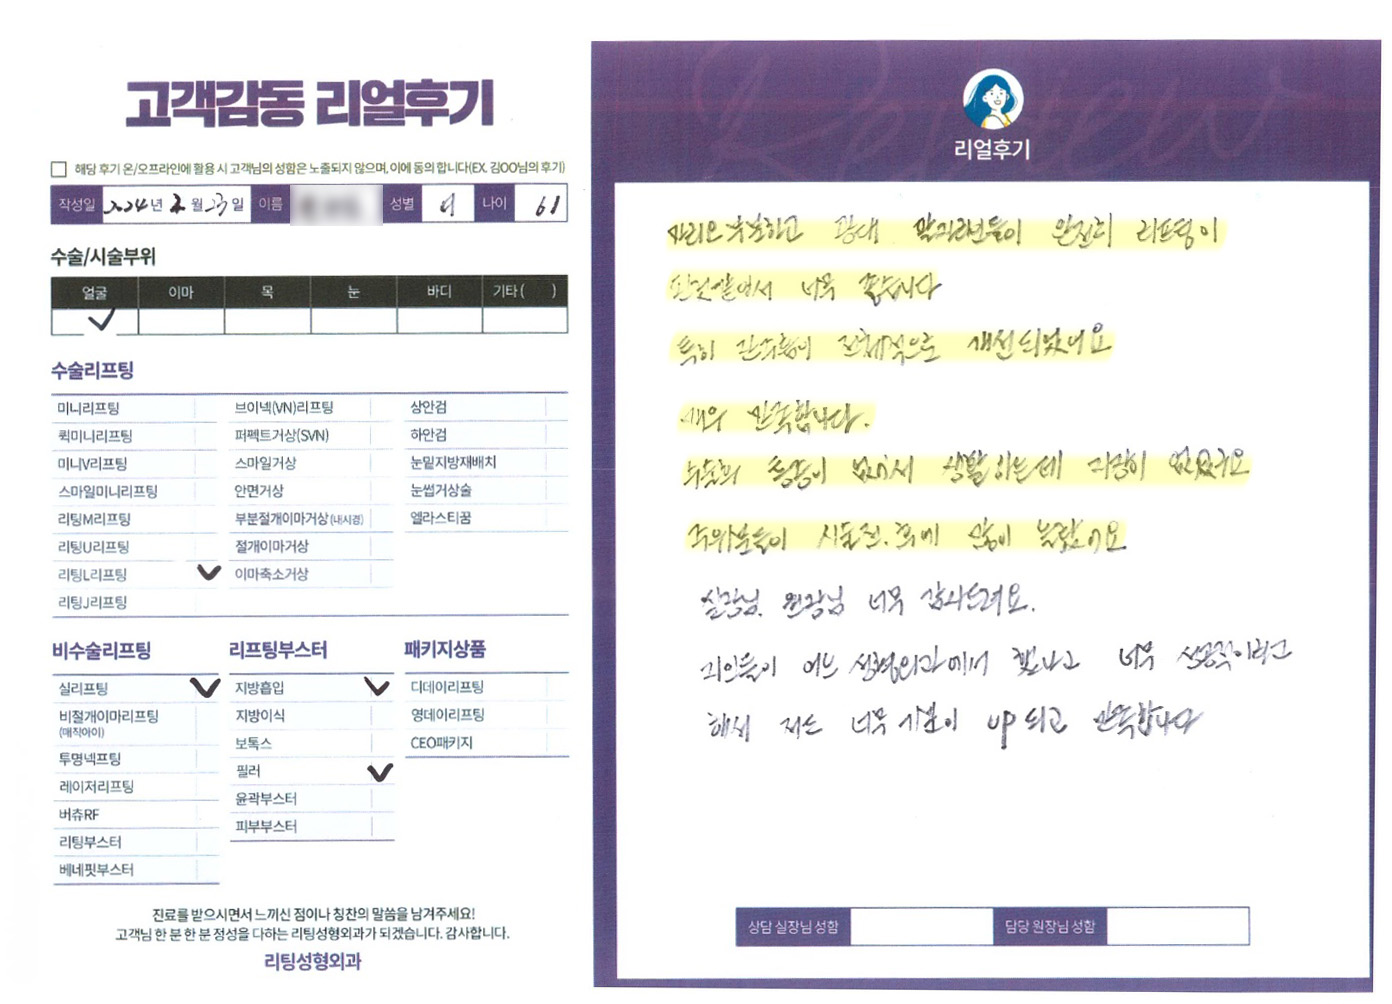 고객감동 리얼후기
해당 후기 온/오프라인에 활용 시 고객님의 성함은 노출되지 않으며, 이에 동의 합니다(EX. 김OO님의 후기)
작성일 2024년 2월 23일 이름 성별 여 나이 61
수술/시술부위
얼굴 이마 목 눈 바디 기타 ( )
수술리프팅
미니리프팅 브이넥(VN)리프팅 상안검
퀵미니리프팅 퍼펙트거상(SVN) 하안검
미니V리프팅 스마일거상 눈밑지방재배치
스마일미니리프팅 안면거상 눈썹거상술
리팅M리프팅 부분절개이마거상(내시경) 엘라스티꿈
리팅U리프팅 절개이마거상
리팅L리프팅 이마축소거상
리팅J리프팅
비수술리프팅 리프팅부스터 패키지상품
실리프팅 지방흡입 디데이리프팅
비절개이마리프팅 지방이식 영데이리프팅
(매직아이)
보톡스 CEO패키지
투명넥프팅 필러
레이저리프팅 윤곽부스터
버츄RF 피부부스터
리팅부스터
베네핏부스터
진료를 받으시면서 느끼신 점이나 칭찬의 말씀을 남겨주세요!
고객님 한 분 한 분 정성을 다하는 리팅성형외과가 되겠습니다. 감사합니다.
리팅성형외과
Review
리얼후기
광대 완전히 리프팅이
너무 좋습니다
특히 전체적으로 개선되었어요
매우 만족합니다.
통증이 없어서 생활하는데 지장이 없었구요
주위분들이 많이 놀랐어요
실장님. 원장님 너무 감사드려요.
지인들이 어느 성형외과에서 했냐고 너무 성공적이라고
해서 저도 너무 기분이 up되고 만족합니다
상담 실장님 성함 담당 원장님 성함